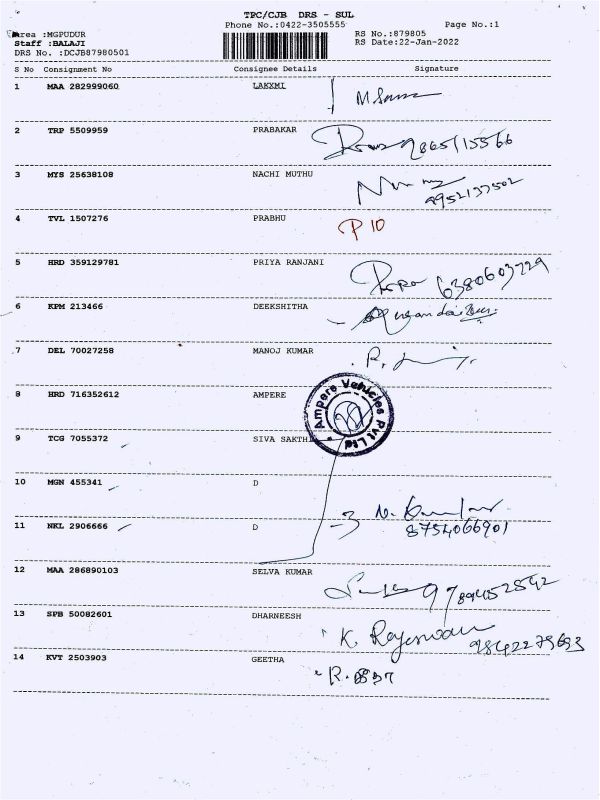 TPC/CJB DRS - SUL
Phone No.:0422-3505555 Page No.:1
Area :MGPUDUR RS No.:879805
Staff :BALAJI RS Date:22-Jan-2022
DRS No. :DCJB87980501
S No Consignment No Consignee Details Signature
1 MAA 282999060 LAKXMI
2 TRP 5509959 PRABAKAR 9865115566
3 MYS 25638108 NACHI MUTHU 9952137502
4 TVL 1507276 PRABHU P 10
5 HRD 359129781 PRIYA RANJANI 6380603729
6 KPM 213466 DEEKSHITHA
7 DEL 70027258 MANOJ KUMAR
8 HRD 716352612 AMPERE Ampere Vehicles Pvt Ltd
9 TCG 7055372 SIVA SAKTHI
10 MGN 455341 D
11 NKL 2906666 D 8754066901
12 MAA 286890103 SELVA KUMAR 9789452542
13 SPB 50082601 DHARNEESH K. Rajeswari 9842275693
14 KVT 2503903 GEETHA